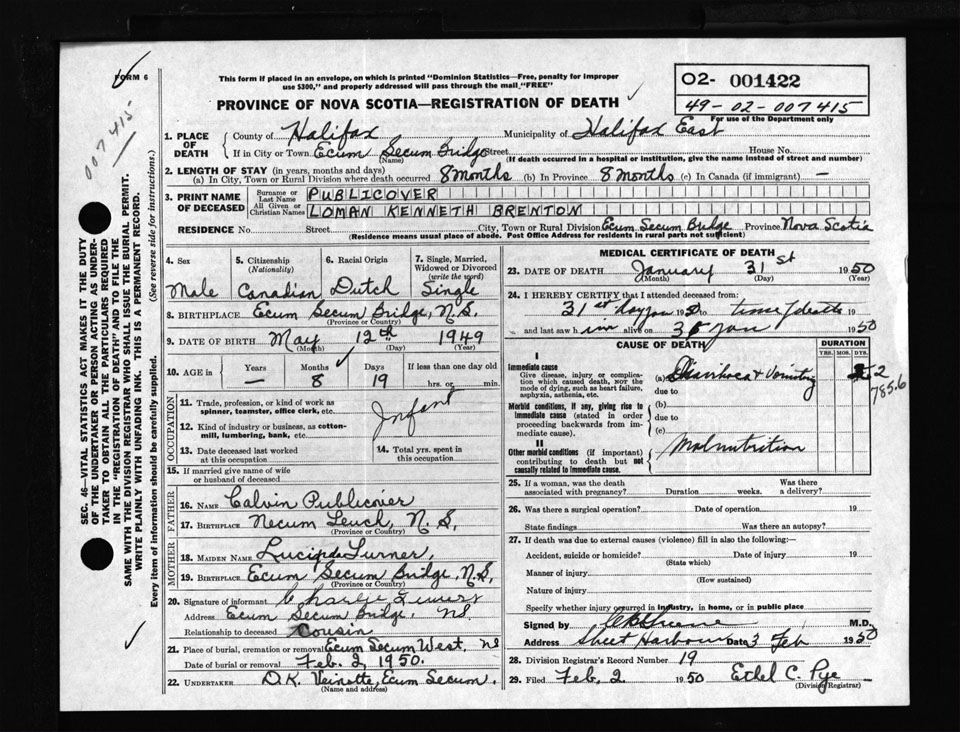 FORM 6
007415
This form if placed in an envelope, on which is printed "Dominion Statistics—Free, penalty for improper
use $300," and properly addressed will pass through the mail "FREE"
PROVINCE OF NOVA SCOTIA—REGISTRATION OF DEATH
02- 001422
49-02-007415
For use of the Department only
SEC. 46—VITAL STATISTICS ACT MAKES IT THE DUTY
OF THE UNDERTAKER OR PERSON ACTING AS UNDER-
TAKER TO OBTAIN ALL THE PARTICULARS REQUIRED
IN THE "REGISTRATION OF DEATH" AND TO FILE THE
SAME WITH THE DIVISION REGISTRAR WHO SHALL ISSUE THE BURIAL PERMIT.
WRITE PLAINLY WITH UNFADING INK. THIS IS A PERMANENT RECORD.
Every item of information should be carefully supplied. (See reverse side for instructions.)
1. PLACE OF DEATH County of Halifax Municipality of Halifax East
If in City or Town Ecum Secum Bridge Street House No.
(Name) (If death occurred in a hospital or institution, give the name instead of street and number)
2. LENGTH OF STAY (in years, months and days)
(a) In City, Town or Rural Division where death occurred 8 months (b) In Province 8 months (c) In Canada (if immigrant) —
3. PRINT NAME OF DECEASED Surname or Last Name PUBLICOVER
All Given or Christian Names LOMAN KENNETH BRENTON
RESIDENCE No. Street City, Town or Rural Division Ecum Secum Bridge Province Nova Scotia
(Residence means usual place of abode. Post Office Address for residents in rural parts not sufficient)
4. Sex 5. Citizenship (Nationality) 6. Racial Origin 7. Single, Married, Widowed or Divorced (write the word)
Male Canadian Dutch Single
8. BIRTHPLACE Ecum Secum Bridge, N.S.
(Province or Country)
9. DATE OF BIRTH May 12th 1949
(Month) (Day) (Year)
10. AGE in Years Months Days If less than one day old
— 8 19 hrs. or min.
OCCUPATION
11. Trade, profession, or kind of work as
spinner, teamster, office clerk, etc.
Infant
12. Kind of industry or business, as cotton-
mill, lumbering, bank, etc.
13. Date deceased last worked
at this occupation
14. Total yrs. spent in
this occupation
15. If married give name of wife
or husband of deceased
FATHER
16. NAME Calvin Publicover
17. BIRTHPLACE Necum Teuch, N.S.
(Province or Country)
MOTHER
18. MAIDEN NAME Lucinda Turner
19. BIRTHPLACE Ecum Secum Bridge, N.S.
(Province or Country)
20. Signature of informant Charlie
Address Ecum Secum Bridge, NS
Relationship to deceased Cousin
21. Place of burial, cremation or removal Ecum Secum West, NS
Date of burial or removal Feb. 2, 1950.
22. UNDERTAKER D.K. Veinotte, Ecum Secum.
(Name and address)
MEDICAL CERTIFICATE OF DEATH
23. DATE OF DEATH January 31st 1950
(Month) (Day) (Year)
24. I HEREBY CERTIFY that I attended deceased from:
31st day Jan 1950 to time of death 19
and last saw him alive on Jan 1950
CAUSE OF DEATH DURATION
YRS. MOS. DYS.
I
Immediate cause
Give disease, injury or compli-
cation which caused death, not the
mode of dying, such as heart failure,
asphyxia, asthenia, etc.
(a) Diarrhoea & Vomiting 2
785.6
due to
Morbid conditions, if any, giving rise to
immediate cause (stated in order
proceeding backwards from im-
mediate cause).
(b)
due to
(c)
II
Other morbid conditions (if important)
contributing to death but not
causally related to immediate cause.
Malnutrition
25. If a woman, was the death
associated with pregnancy? Duration weeks. Was there
a delivery?
26. Was there a surgical operation? Date of operation 19
State findings Was there an autopsy?
27. If death was due to external causes (violence) fill in also the following:—
Accident, suicide or homicide? Date of injury 19
(State which)
Manner of injury
(How sustained)
Nature of injury
Specify whether injury occurred in industry, in home, or in public place
Signed by M.D.
Address Sheet Harbour Date 3 Feb 1950
28. Division Registrar's Record Number 19
29. Filed Feb. 2 1950 Ethel C. Pye
(Division Registrar)